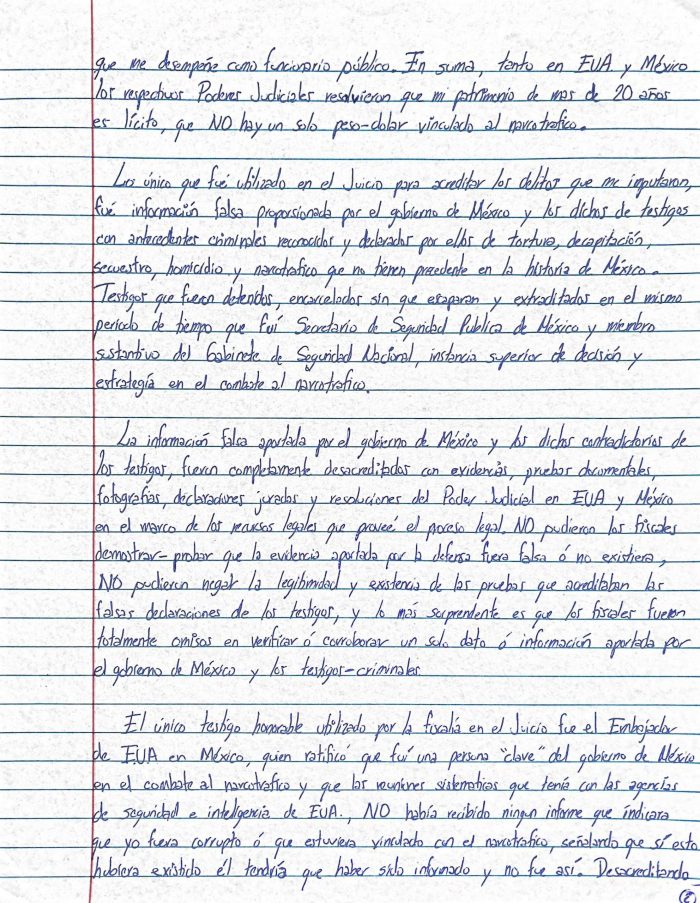 que me desempeñe como funcionario público. En suma, tanto en EUA y México
los respectivos Poderes Judiciales resolvieron que mi patrimonio de mas de 20 años
es lícito, que NO hay un solo peso-dolar vinculado al narcotrafico.
Lo único que fué utilizado en el Juicio para acreditar los delitos que me imputaron,
fué información falsa proporsionada por el gobierno de México y los dichos de testigos
con antecedentes criminales reconocidos y declarados por ellos de tortura, decapitación,
secuestro, homicidio y narcotrafico que no tienen precedente en la historia de México.
Testigos que fueron detenidos, encarcelados sin que escaparan y extraditados en el mismo
periodo de tiempo que fuí Secretario de Seguridad Publica de México y miembro
sustantivo del Gabinete de Seguridad Nacional, instancia superior de decisión y
estrategía en el combate al narcotrafico.
La información falsa aportada por el gobierno de México y los dichos contradictorios de
los testigos, fueron completamente desacreditados con evidencias, pruebas documentales,
fotografías, declaraciones juradas y resoluciones del Poder Judicial en EUA y México
en el marco de los recursos legales que proveé el proceso legal. NO pudieron los fiscales
demostrar-probar que la evidencia aportada por la defensa fuera falsa ó no existiera,
NO pudieron negar la legitimidad y existencia de las pruebas que acreditaban las
falsas declaraciones de los testigos, y lo más sorprendente es que los fiscales fueron
totalmente omisos en verificar ó corroborar un solo dato ó información aportada por
el gobierno de México y los testigos-criminales
El único testigo honorable utilizado por la fiscalía en el Juicio fue el Embajador
de EUA en México, quien ratificó que fuí una persona "clave" del gobierno de México
en el combate al narcotráfico y que las reuniones sistematicas que tenía con las agencias
de seguridad e inteligencia de EUA., NO había recibido ningun informe que indicara
que yo fuera corrupto ó que estuviera vinculado con el narcotrafico, señalando que sí esto
hubiera existido él tendría que haber sido informado y no fue así. Desacreditando
2